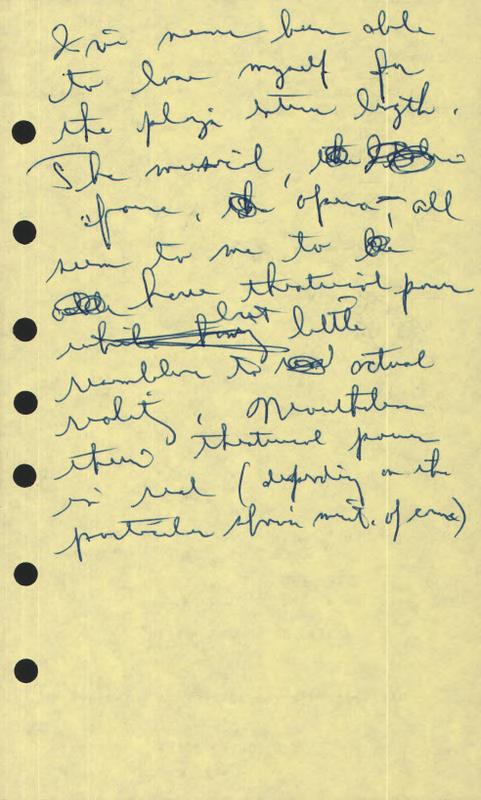 I've never been able
to lose myself for
the play's entire length.
The musical, the
farce, the opera, all
seem to me to
have theatrical power
but little
resemblance to actual
reality. Nonetheless
their theatrical power
is real (depending on the
particular show's merit, of course)